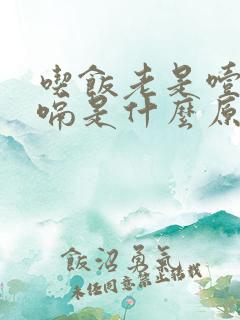 喫飯老是噎
嗝是什麼原
飯沼勇氣
未經同意禁止轉載